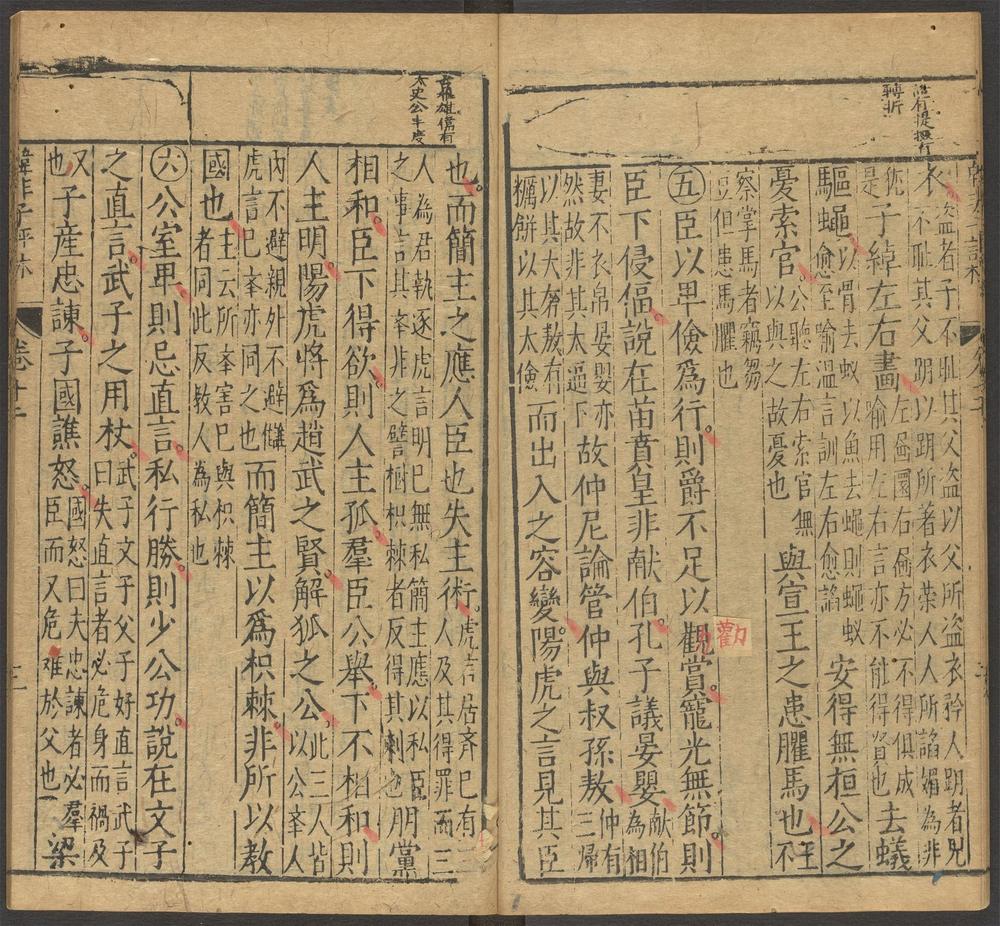 衣盜者子不耻其父盜以父所盜衣矜人跀者兒
不耻其父跀以跀所著衣榮人人所諂媚為非
猶是子綽左右畫左畫圓右畫方必不得俱成
喻用左右言亦不能得賢也去蟻
驅蠅以骨去蟻以魚去蠅則蠅蟻
愈至喻溫言訓左右愈諂安得無桓公之
憂索官公聽左右索官無
官以與之故憂也與宣王之患臞馬也王不
察掌馬者竊芻
豆但患馬臞也
五臣以卑儉爲行則爵不足以觀賞寵光無節則
勸
臣下侵偪說在苗賁皇非献伯孔子議晏嬰献伯為相
妻不衣帛晏嬰亦
然故非其太逼下故仲尼論管仲與叔孫敖仲有三歸
以其大奢敖有
糲餅以其太儉而出入之容變陽虎之言見其臣
太史公丰度
也而簡主之應人臣也失主術虎言居齊已有三
人及其得罪而三
人為君執逐虎言明已無私簡主應以私臣
之事言其举非之譬樹枳棘者反得其刺也朋黨
相和臣下得欲則人主孤羣臣公舉下不相和則
人主明陽虎將爲趙武之賢解狐之公此三人皆
以公举人
內不避親外不避讎
虎言已举亦同之也而簡主以爲枳棘非所以教
國也主云所举害已與枳棘
者同此反教人為私也
六公室卑則忌直言私行勝則少公功說在文子
之直言武子之用杖武子文子父子好直言武子
曰失直言者必危身而禍及
又也子產忠諫子國譙怒國怒曰夫忠諫者必羣
臣而又危難於父也梁
韓非子評林 卷十二